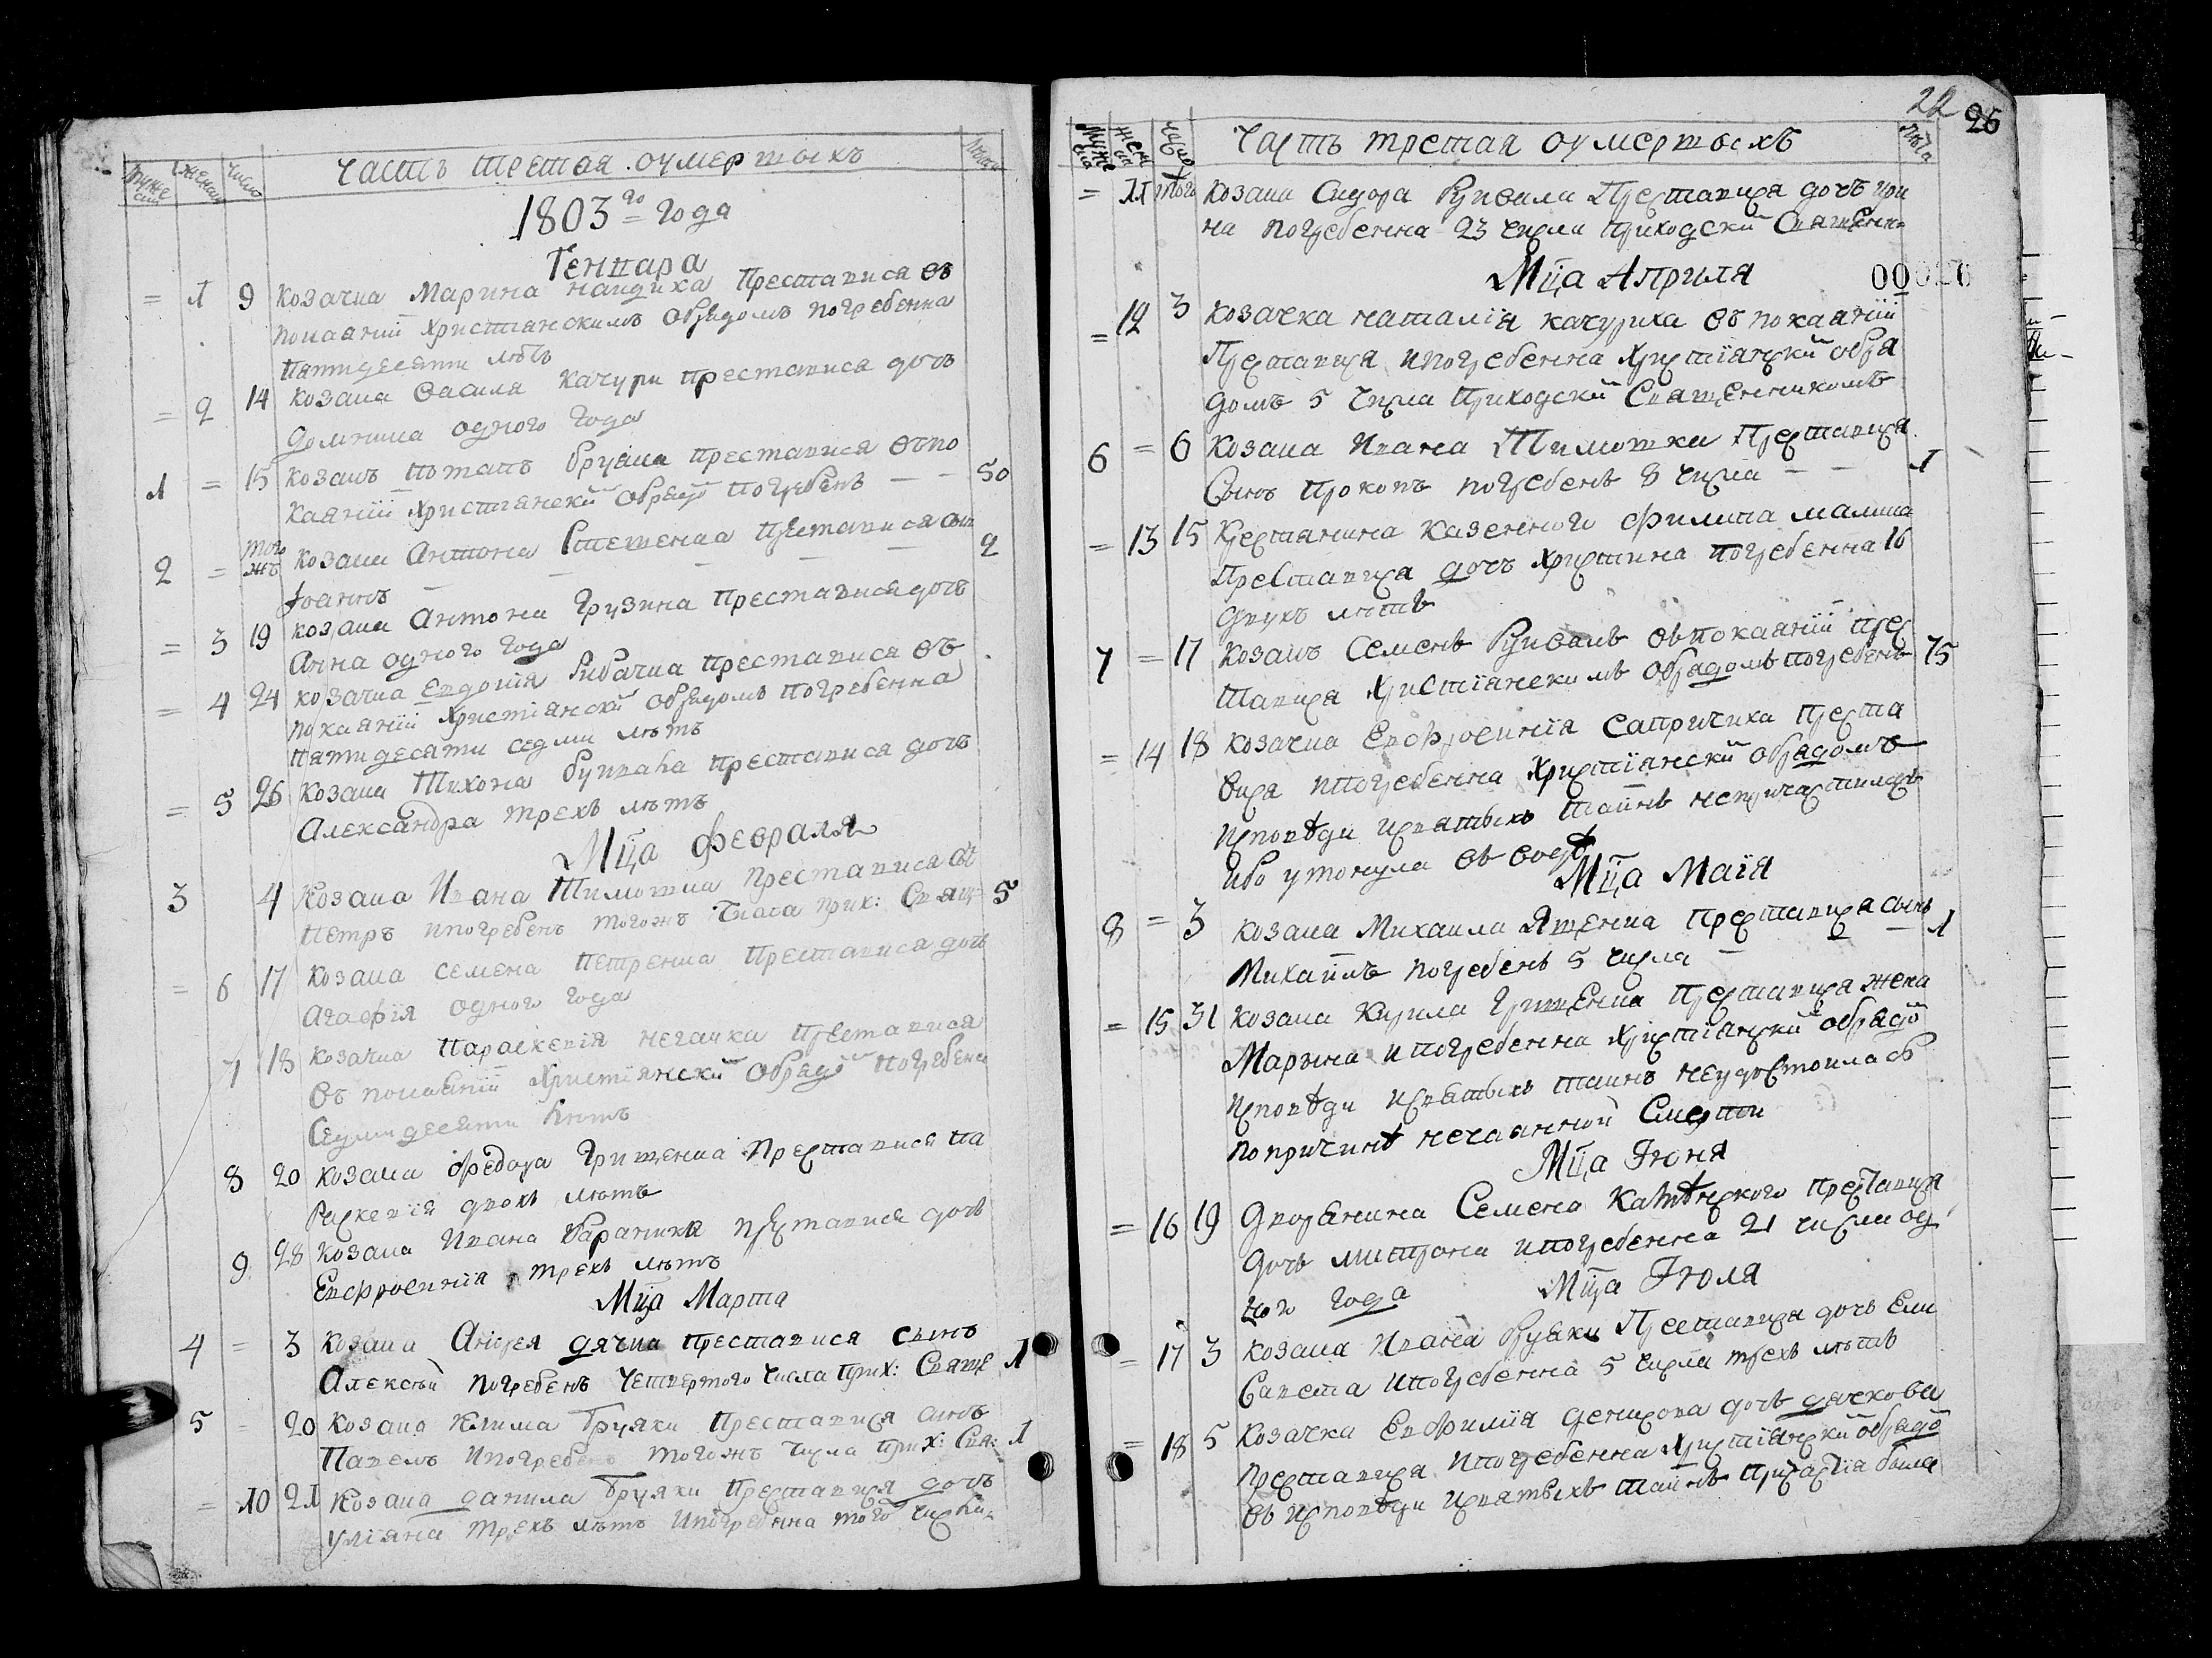 Мужеска Женска Число Часть третая оумертыхъ Лѣта
1803го Года
Генваря
= 1 9 Козачка Марина Преставися въ
покаянїи христїанскимъ обрядомъ погребенна
пятидесяти лѣтъ
= 2 14 Козака Василя Качури преставися дочь
Домникиа одного года
1 = 15 Козакъ Потапъ Бруяка преставися въ по
каянїи христїански обрядо погребенъ — — 50
2 = тогожъ Козака Антона преставися синъ
Іоаннъ — — — — 2
= 3 19 Козака Антона Грузина преставися дочь
Анна одного года
= 4 24 Козачка Евдокїя Рибачка преставися въ
покаянїи христїански обрядомъ погребенна
пятидесяти седми лѣтъ
= 5 26 Козака Тихона преставися дочь
Александра трехъ лѣтъ
Мца Февраля
3 4 Козака Ивана Тимошка преставися сы
Петръ и погребенъ тогожъ числа прих: Свящ 5
= 6 17 Козака Семена Петренка преставися дочь
Агафїя одного года
7 18 Козачка Параскевїя преставися
въ покаянїи христїански обрядо погребена
седмидесяти лѣтъ
8 20 Козака Федора Грищенка преставися Па
раскевїя двохъ лѣтъ
9 28 Козака Ивана Бараника преставися дочь
Евфросинїя трехъ лѣтъ
Мца Марта
4 = 3 Козака Андрея Дячка преставися сынъ
Алексѣй погребенъ четвертого числа прих: Свяще 1
5 = 20 Козака Клима Бруяки преставися синъ
Павелъ и погребенъ тогожъ числа прих: Свя: 1
= 10 21 Козака Данила Бруяки преставися дочь
Улїяна трехъ лѣтъ и погребенна того
22 26
Мужеска Женска Число Часть третая оумертыхъ Лѣта
= 11 того Козака Сидора Преставися дочъ Ири
на погребенна 23 числа приходски Священи
Мца Априля
00026
= 12 3 Козачка Наталїя Качуриха въ покаянїи
Преставися и погребенна христїански обря
домъ 5 числа приходски Священникомъ
6 = 6 Козака Ивана Тимошки Преставися
Сынъ Прокопъ погребенъ 8 числа — — 1
= 13 15 Крестянина казенного Филипа Малика
Преставися дочъ Христина погребенна 16
двухъ лѣтъ
7 = 17 Козакъ Семенъ въ покаянїи пре
ставися христїанскимъ обрядомъ погребенъ 75
= 14 18 Козачка Евфросинїя Сапричиха преста
вися и погребенна христїански обрядомъ
исповѣди и святыхъ таинъ непричастилась
ибо утонула въ водѣ
Мца Маїя
8 = 3 Козака Михаила Ященка преставися сынъ 1
Михаилъ погребенъ 5 числа —
= 15 31 Козака Кирила Грищенка преставися жена
Марина и погребенна христїански обрядо
исповѣди и святыхъ таинъ неудостоилась
по причинѣ нечаянной смерти
Мца Июня
= 16 19 Дворянина Семена преставися
дочъ Митрона и погребенна 21 числа од
ного года
Мца Июля
= 17 3 Козака Ивана Бруяки Преставися дочъ Ели
Савета и погребенна 5 числа трехъ лѣтъ
= 18 5 Козачка Евфимїя Денисова дочъ Дячкова
преставися и погребенна христїански обрядо
въ исповѣди и святыхъ таинъ причастїя была